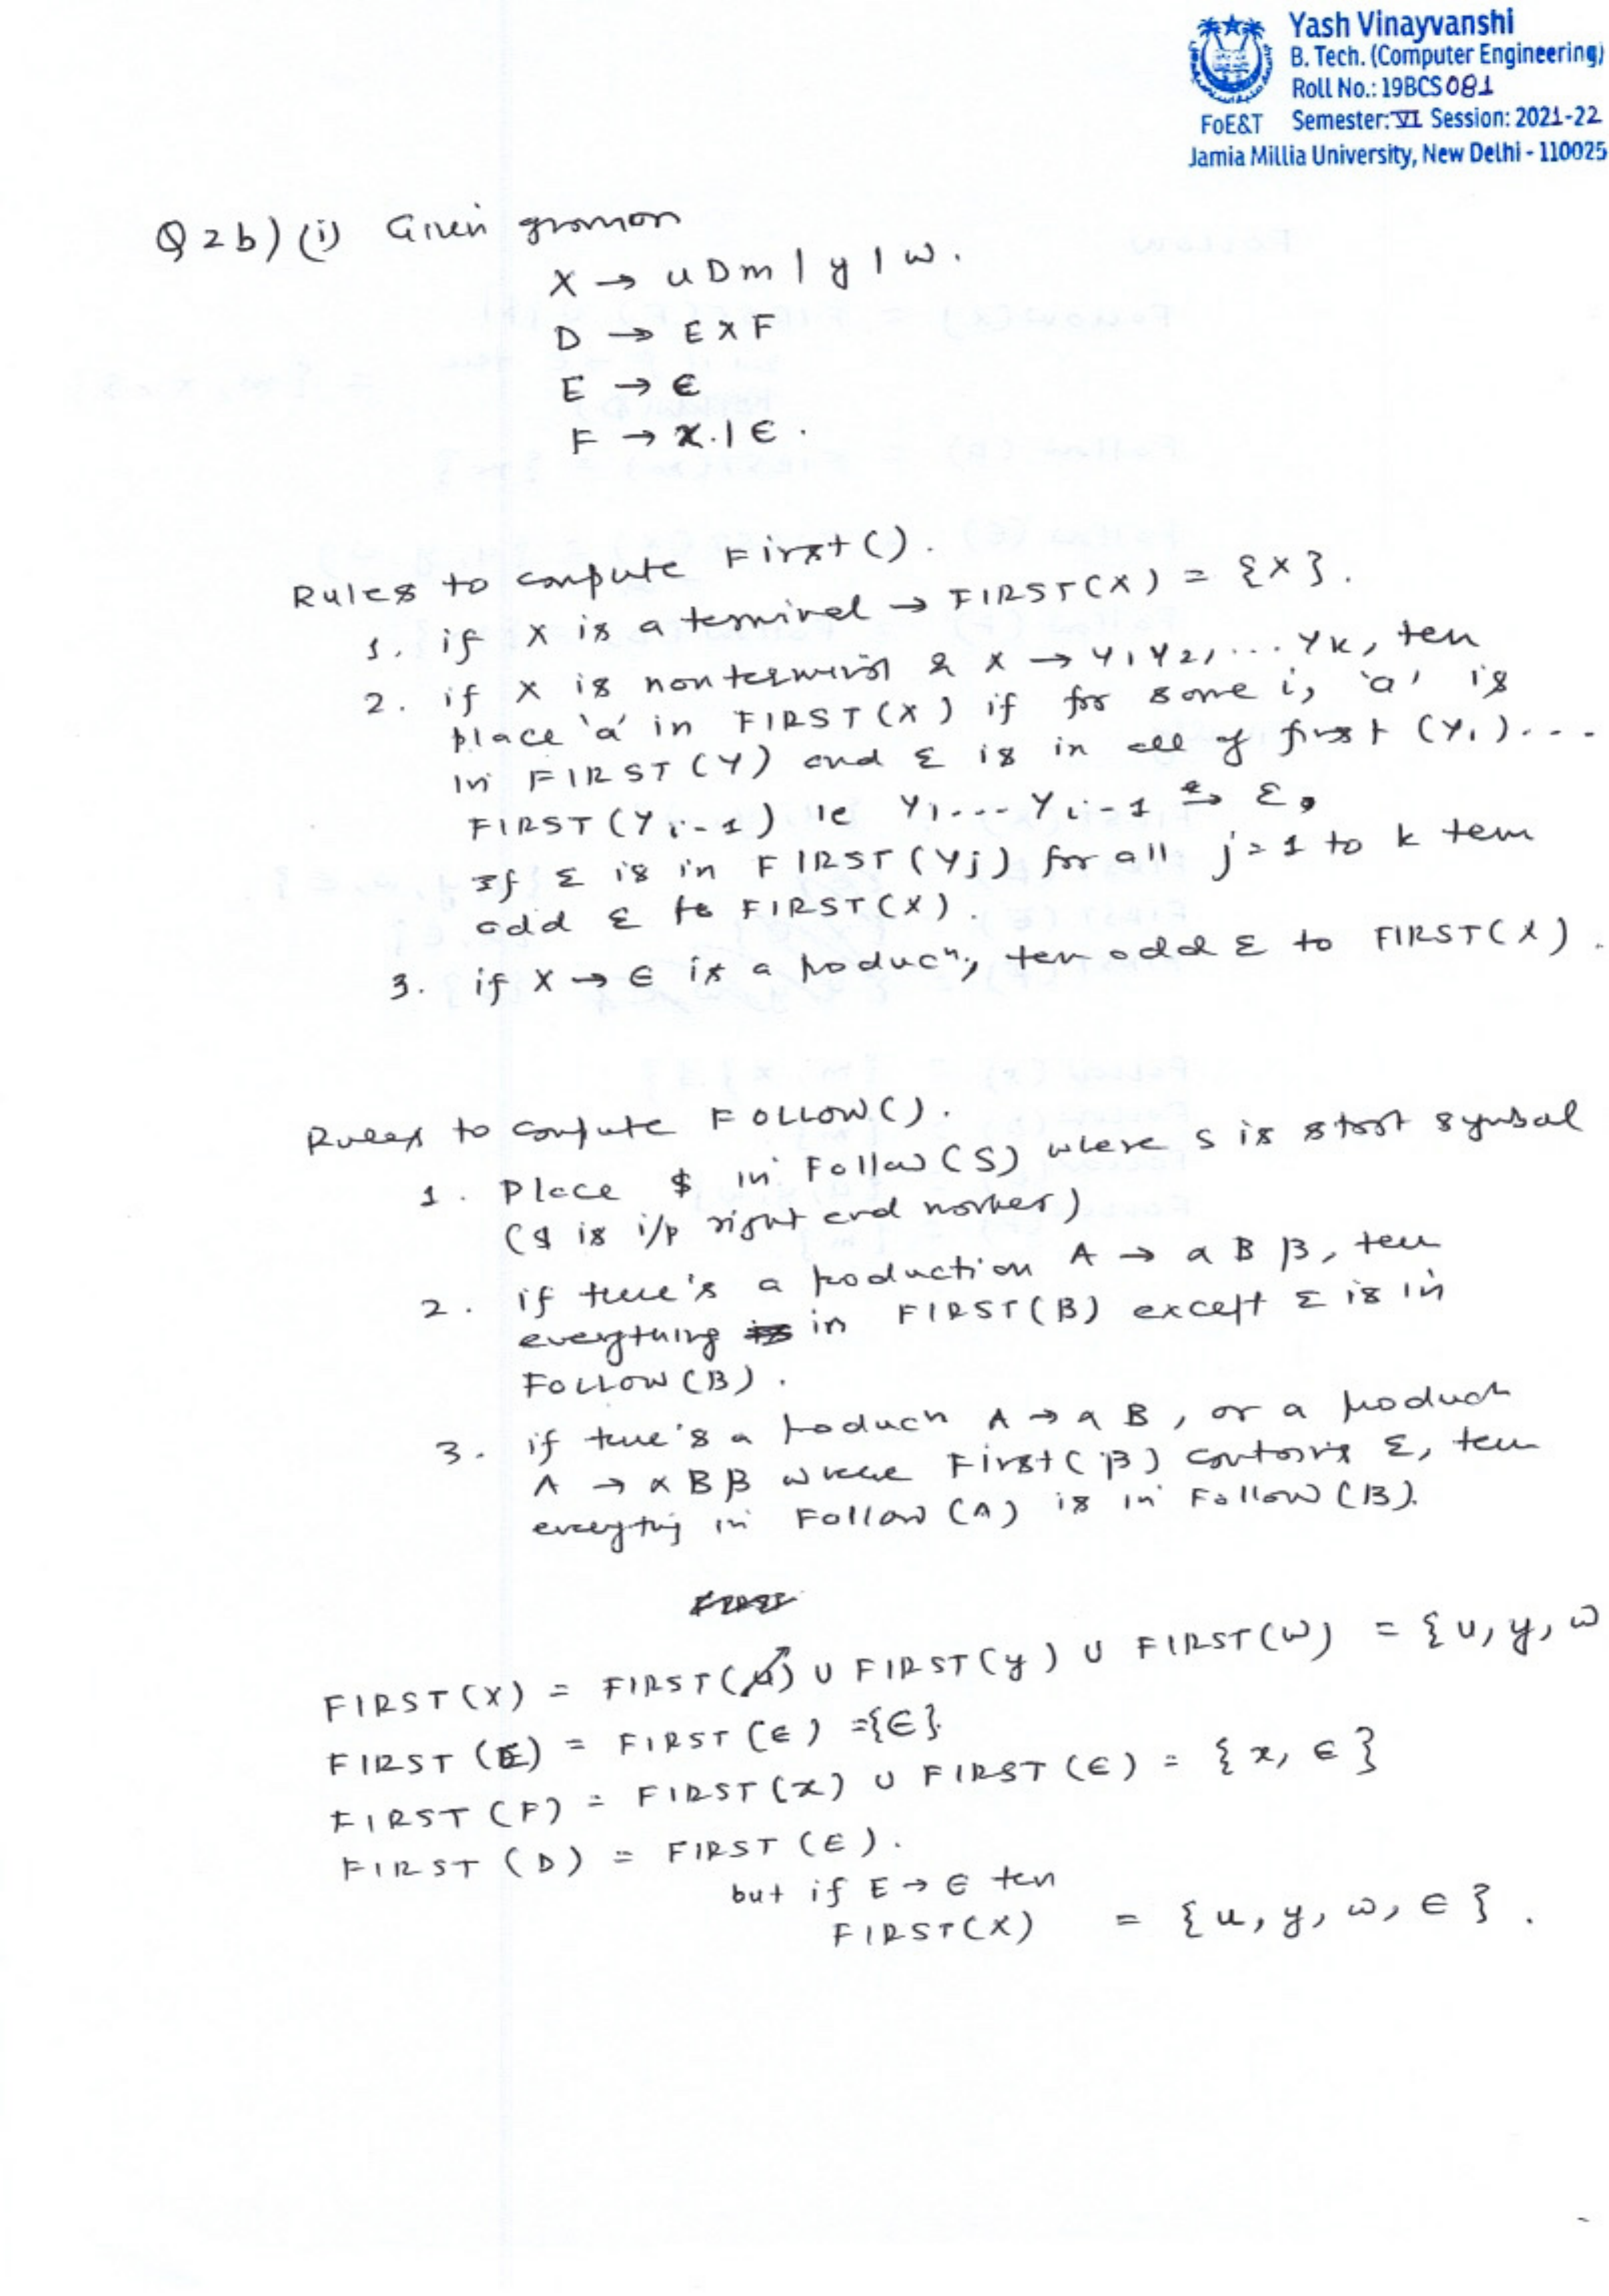 Yash Vinayvanshi
B. Tech. (Computer Engineering)
Roll No.: 19BCS081
FoE&T Semester: VI Session: 2021-22
Jamia Millia University, New Delhi - 110025
Q2b) (i) Given grammar
X → uDm | y | w.
D → EXF
E → ∈
F → x.|∈.
Rules to compute First().
1. if X is a terminal → FIRST(X) = {X}.
2. if X is nonterminal & X → Y1Y2,... Yk, ten
place 'a' in FIRST(X) if for some i, 'a' is
in FIRST(Y) and Σ is in all of first (Y1)....
FIRST(Yi-1) ie Y1....Yi-1 ⇒ Σ,
If Σ is in FIRST(Yj) for all j=1 to k tem
add Σ to FIRST(X).
3. if X → ∈ is a producn, ten add Σ to FIRST(X).
Rules to compute FOLLOW().
1. Place $ in Follow(S) where S is start symbol
($ is i/p right end marker)
2. if there's a production A → aBβ, ten
everything in FIRST(B) except Σ is in
FOLLOW(B).
3. if there's a producn A → aB, or a produch
A → αBβ where First(β) contains Σ, ten
everything in Follow(A) is in Follow(B).
FIRST(X) = FIRST(u) U FIRST(y) U FIRST(W) = {u, y, w
FIRST(E) = FIRST(∈) ={∈}.
FIRST(F) = FIRST(x) U FIRST(∈) = {x, ∈}
FIRST(D) = FIRST(E).
but if E → ∈ ten
FIRST(X) = {u, y, w, ∈}.